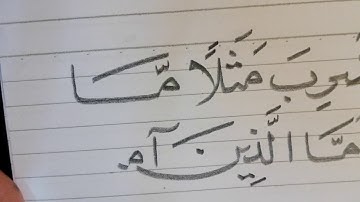 مَثَلًا مَّا
مَّا الَّذِينَ آم